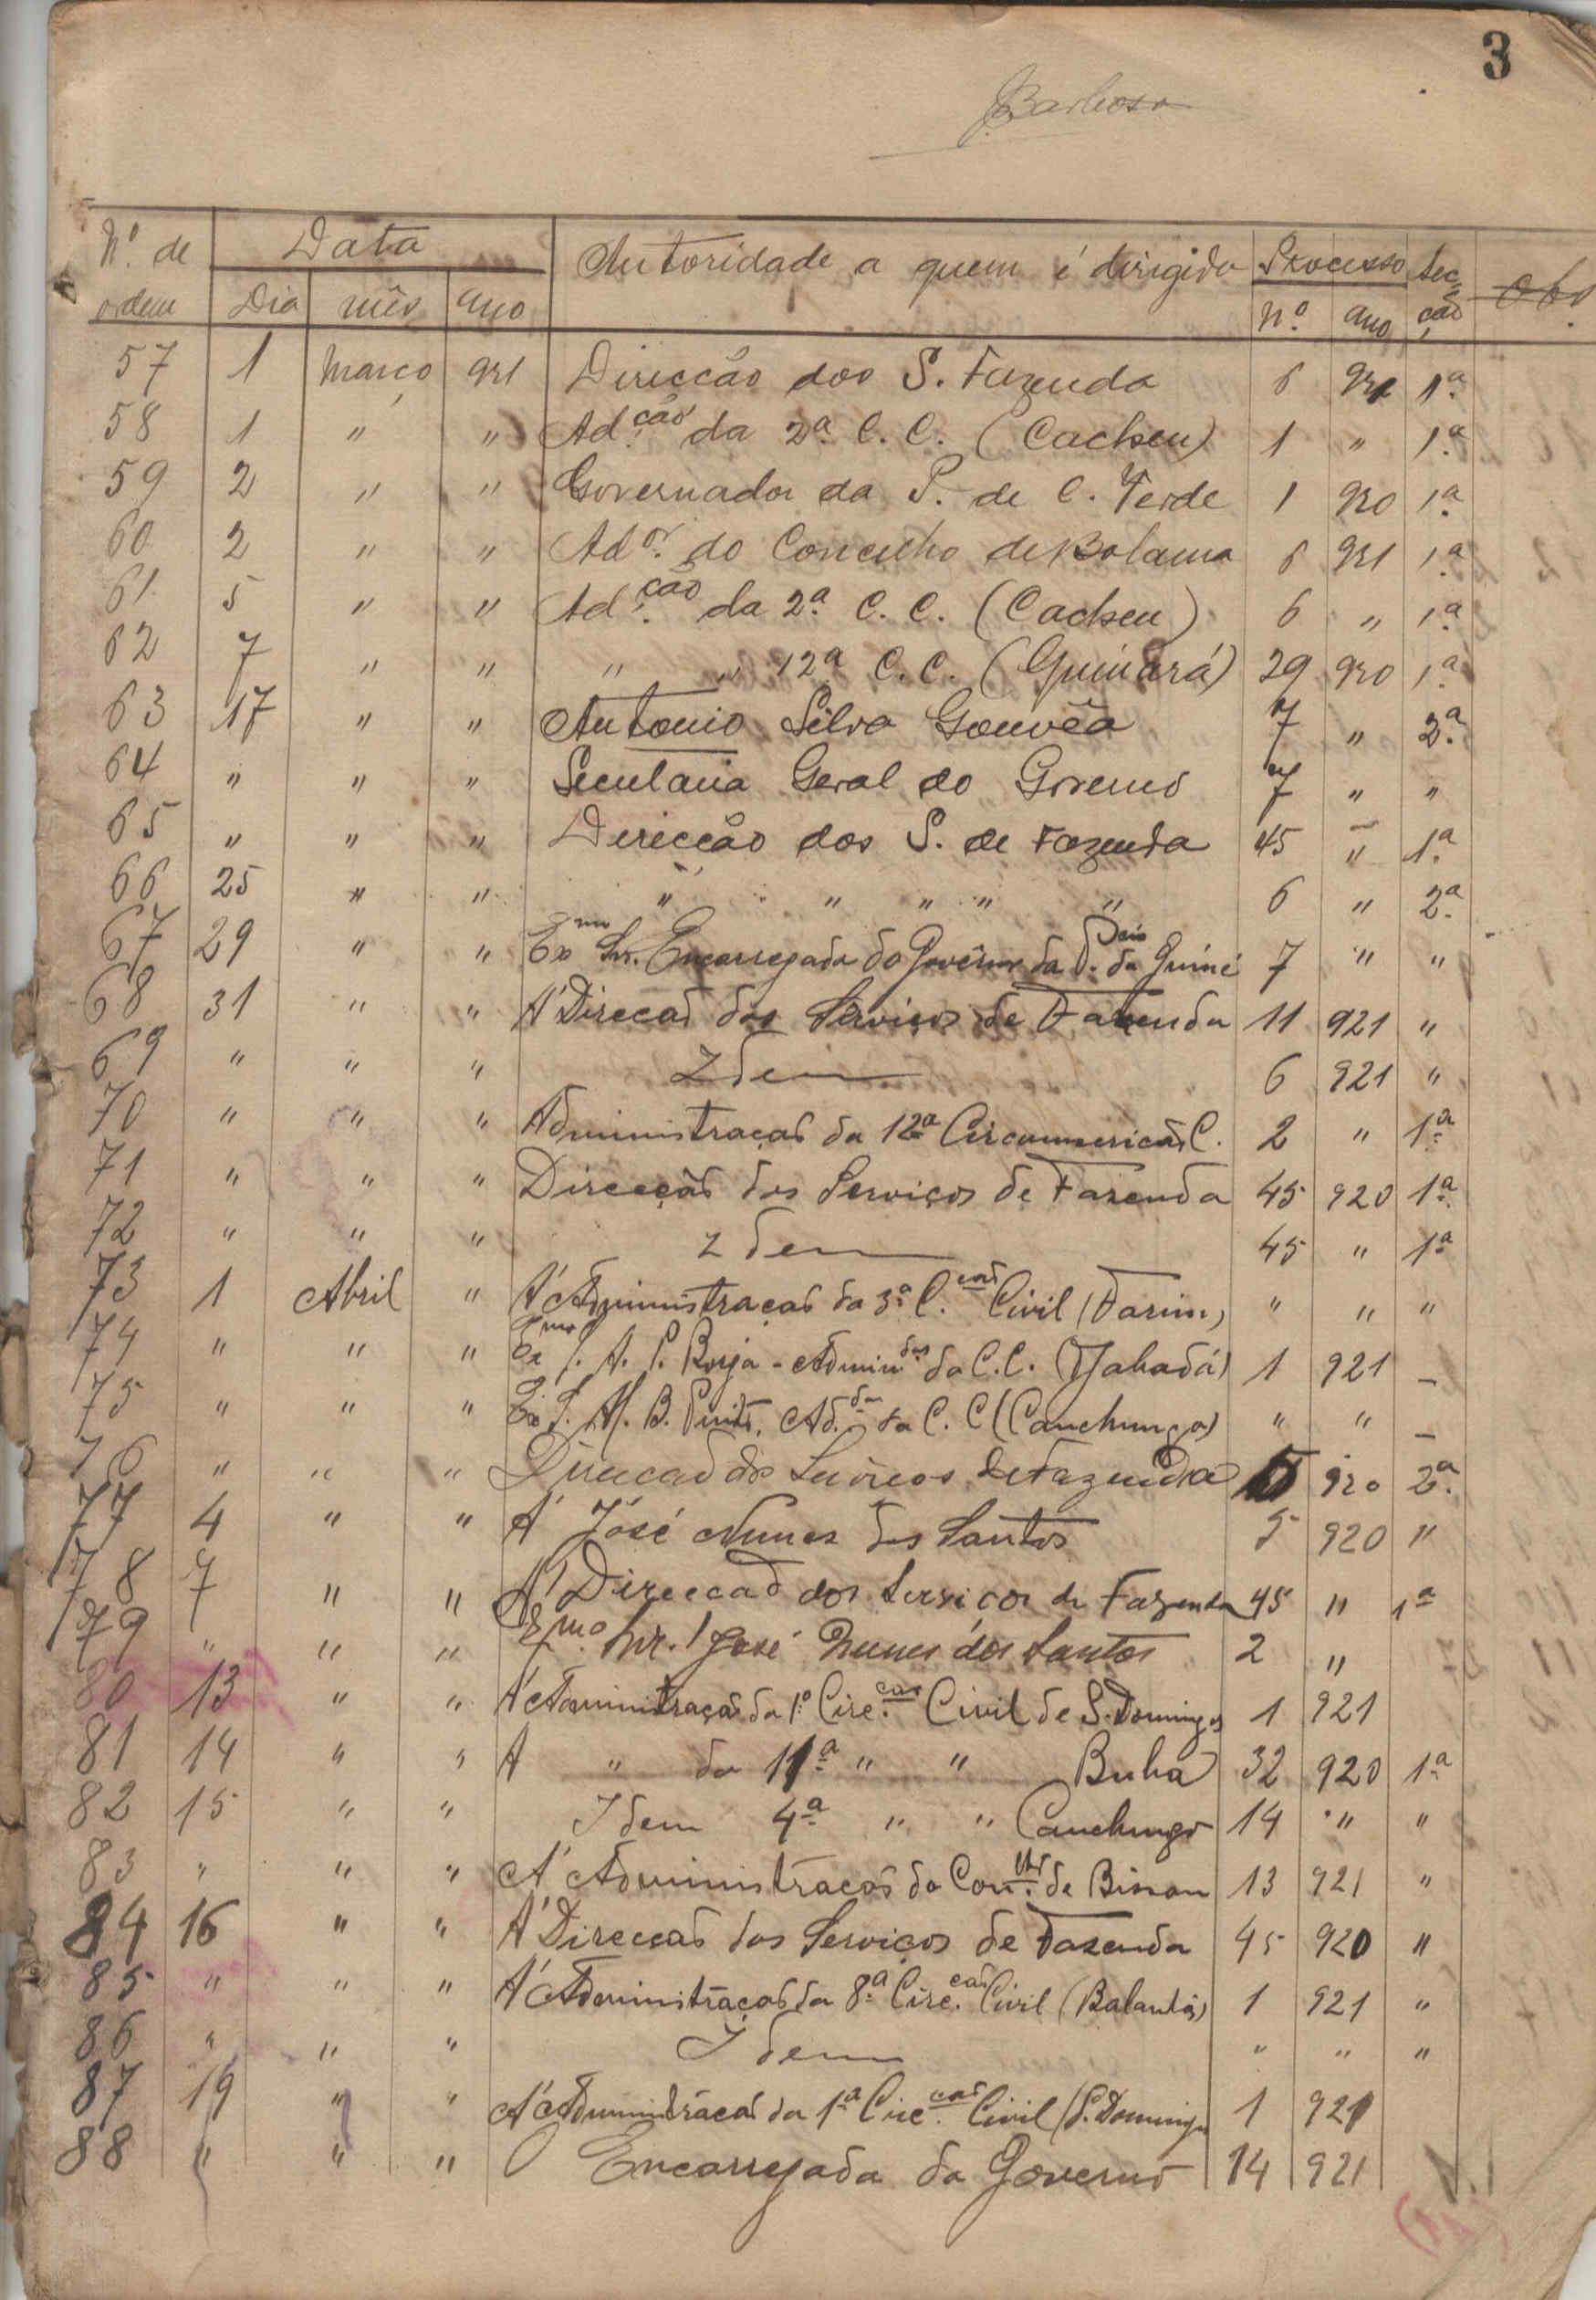 3
Barbosa
Nº. de Data Autoridade a quem é dirigido Processo Sec-
ordem Dia mês ano Nº. ano ção Obs.
57 1 Março 921 Direcção dos S. Fazenda 6 921 1ª
58 1 " " Ad.ção da 2ª C. C. (Cacheu) 1 " 1ª
59 2 " " Governador da P. de C. Verde 1 920 1ª
60 2 " " Ad.or do Concelho de Bolama 6 921 1ª
61 5 " " Ad.ção da 2ª C. C. (Cacheu) 6 " 1ª
62 7 " " " " 12ª C. C. (Quinará) 29 920 1ª
63 17 " " Antonio Silva Gouvêa 7 " 2ª
64 " " " Secretaria Geral do Governo 7 " "
65 " " " Direcção dos S. de Fazenda 45 " 1ª
66 25 " " " " " " " 6 " 2ª
67 29 " " Exmo Snr. Encarregado do Govêrno da P. da Guiné 7 " "
68 31 " " A' Direcção dos Serviços de Fazenda 11 921 "
69 " " " Idem 6 921 "
70 " " " Administração da 12ª Circunscrição C. 2 " 1ª
71 " " " Direcção dos Serviços de Fazenda 45 920 1ª
72 " " " Idem 45 " 1ª
73 1 Abril " A' Administração da 3ª C.ção Civil (Farim) " " "
74 " " " Exmo S. A. P. Borja - Admin. da C. C. (Jabadá) 1 921 -
75 " " " Ex S. M. B. Ad. da C. C (Canchungo) " " -
76 " " " Direcção dos Serviços de Fazenda 5 920 2ª
77 4 " " A' José Nunes dos Santos 5 920 "
78 7 " " A' Direcção dos Serviços de Fazenda 45 " 1ª
79 " " " Exmo Snr. José Nunes dos Santos 2 "
80 13 " " A' Administração da 1ª Circ.ção Civil de S. Domingos 1 921
81 14 " " A " da 11ª " " Buba 32 920 1ª
82 15 " " Idem 4ª " " Canchungo 14 " "
83 " " " A' Administração do Con.lho de Bissau 13 921 "
84 16 " " A' Direcção dos Serviços de Fazenda 45 920 "
85 " " " A' Administração da 8ª Circ.ção Civil (Balantas) 1 921 "
86 " " " Idem " " "
87 19 " " A' Administração da 1ª Circ.ção Civil (S. Domingos 1 921
88 " " " O Encarregado do Governo 14 921